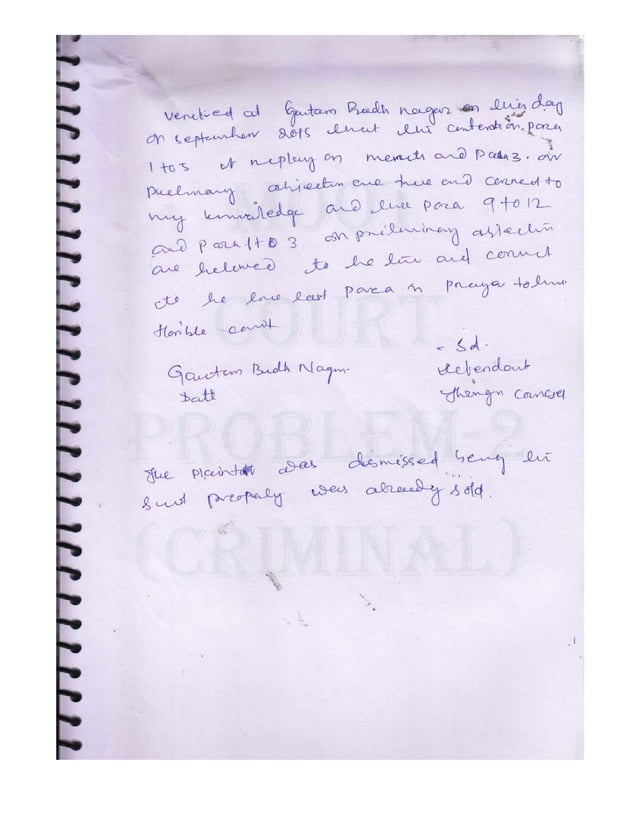 Verified at Gautam Budh Nagar on this day
of september 2015 that the contention para
1 to 5 of on merits and Para 3. on
objection are true and correct to
my knowledge and the para 9 to 12
and para 1 to 3 on preliminary objection
are believed to be true and correct
to be true last para is prayer to
Hon'ble court
- Sd.
Gautam Budh Nagar
Defendant
Date
Through Counsel
The plaint was dismissed being the
suit property was already sold.
MOOT
COURT
PROBLEM-2
(CRIMINAL)